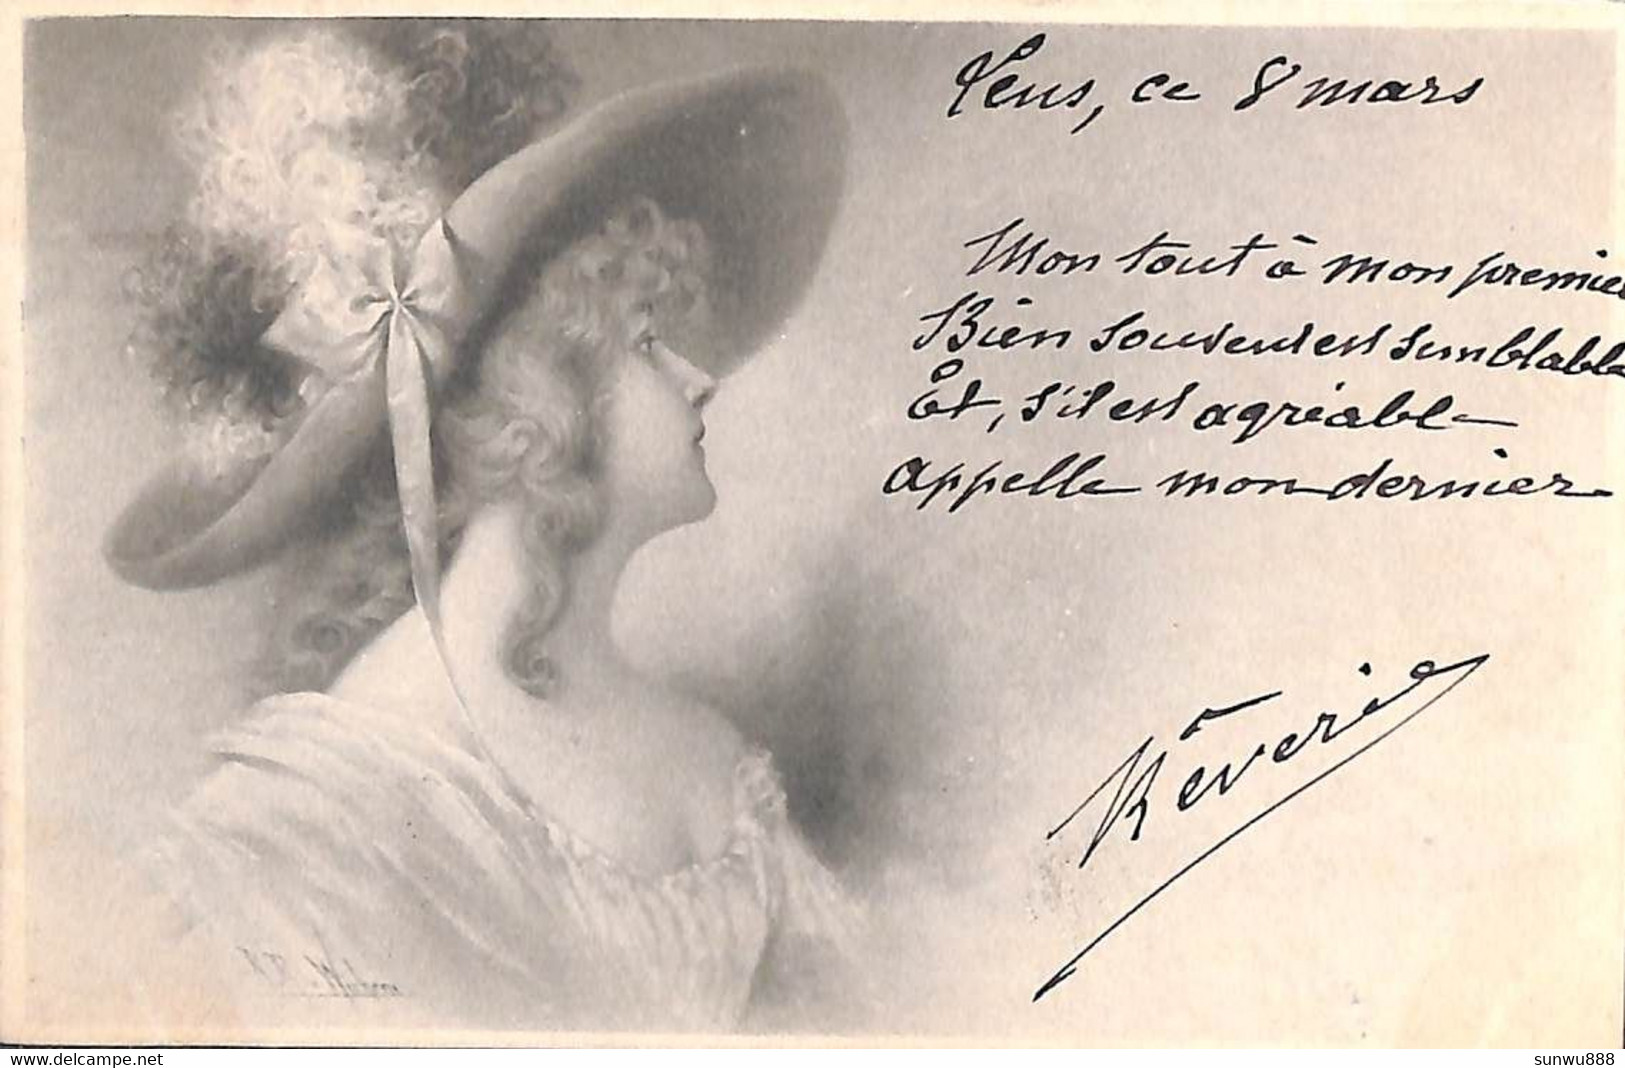 Lens, ce 8 mars
Mon tout à mon premier
Bien souvent est semblable
Et, s'il est agréable
appelle mon dernier
Rêverie
delcampe.net
sunwu888